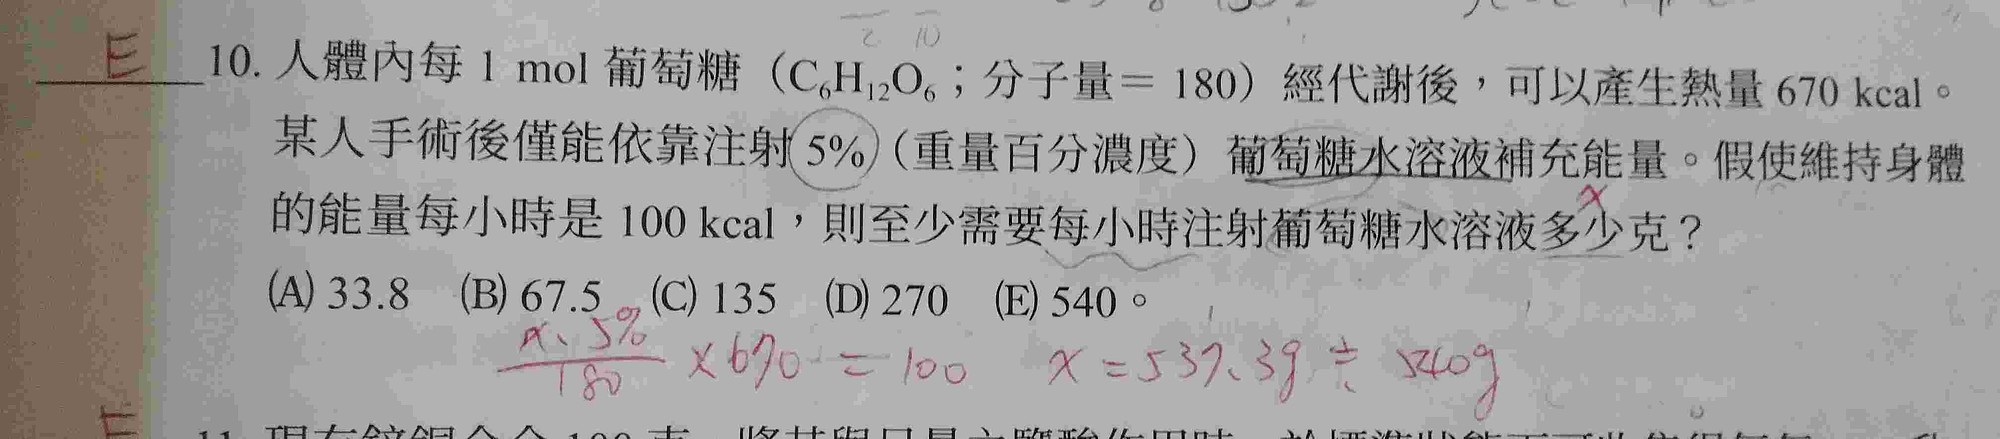 2 10
E 10. 人體內每 1 mol 葡萄糖（C₆H₁₂O₆；分子量＝ 180）經代謝後，可以產生熱量 670 kcal。
某人手術後僅能依靠注射 5%（重量百分濃度）葡萄糖水溶液補充能量。假使維持身體
x
的能量每小時是 100 kcal，則至少需要每小時注射葡萄糖水溶液多少克？
(A) 33.8 (B) 67.5 (C) 135 (D) 270 (E) 540。
x、5%
180 × 670 = 100 x = 537.3g ≒ 540g